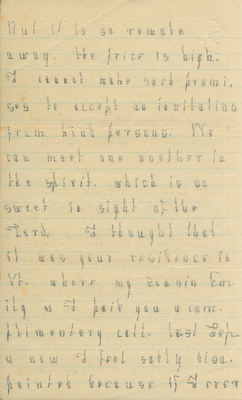 But it is so remote
away. the price is high.
I cannot make such promi,
ses to accept an invitation
from kind persons. We
can meet one another in
the spirit. which is so
sweet in sight of the
Lord. I thought that
it was your residence in
Vt. where my cousin Em-
ily & I paid you a com-
plimentary call. last Sep.
& now I feel sadly disa-
pointed because if I ever